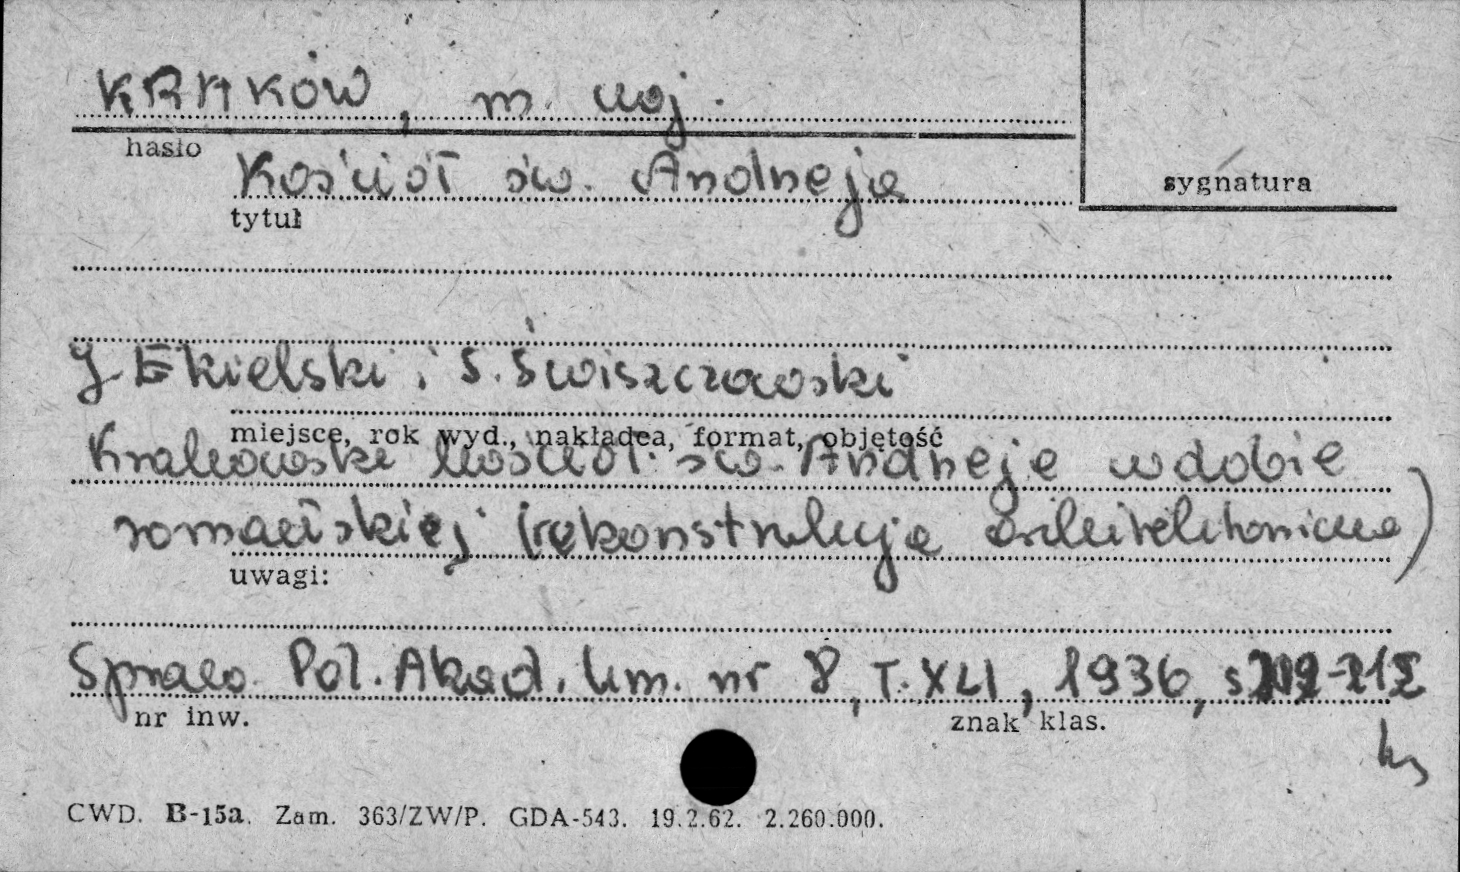 KRAKÓW, m. woj.
hasło
Kościół św. Andrzeja
sygnatura
tytuł
J. Ekielski i S. Świszczowski
miejsce, rok wyd., nakładca, format, objętość
Krakowski kościół św. Andrzeja w dobie
romańskiej (rekonstrukcja architektoniczna)
uwagi:
Spraw. Pol. Akad. Um. nr 8, T. XLI, 1936, s.
nr inw.
znak klas.
CWD. B-15a. Zam. 363/ZW/P. GDA-543. 19.2.62. 2.260.000.